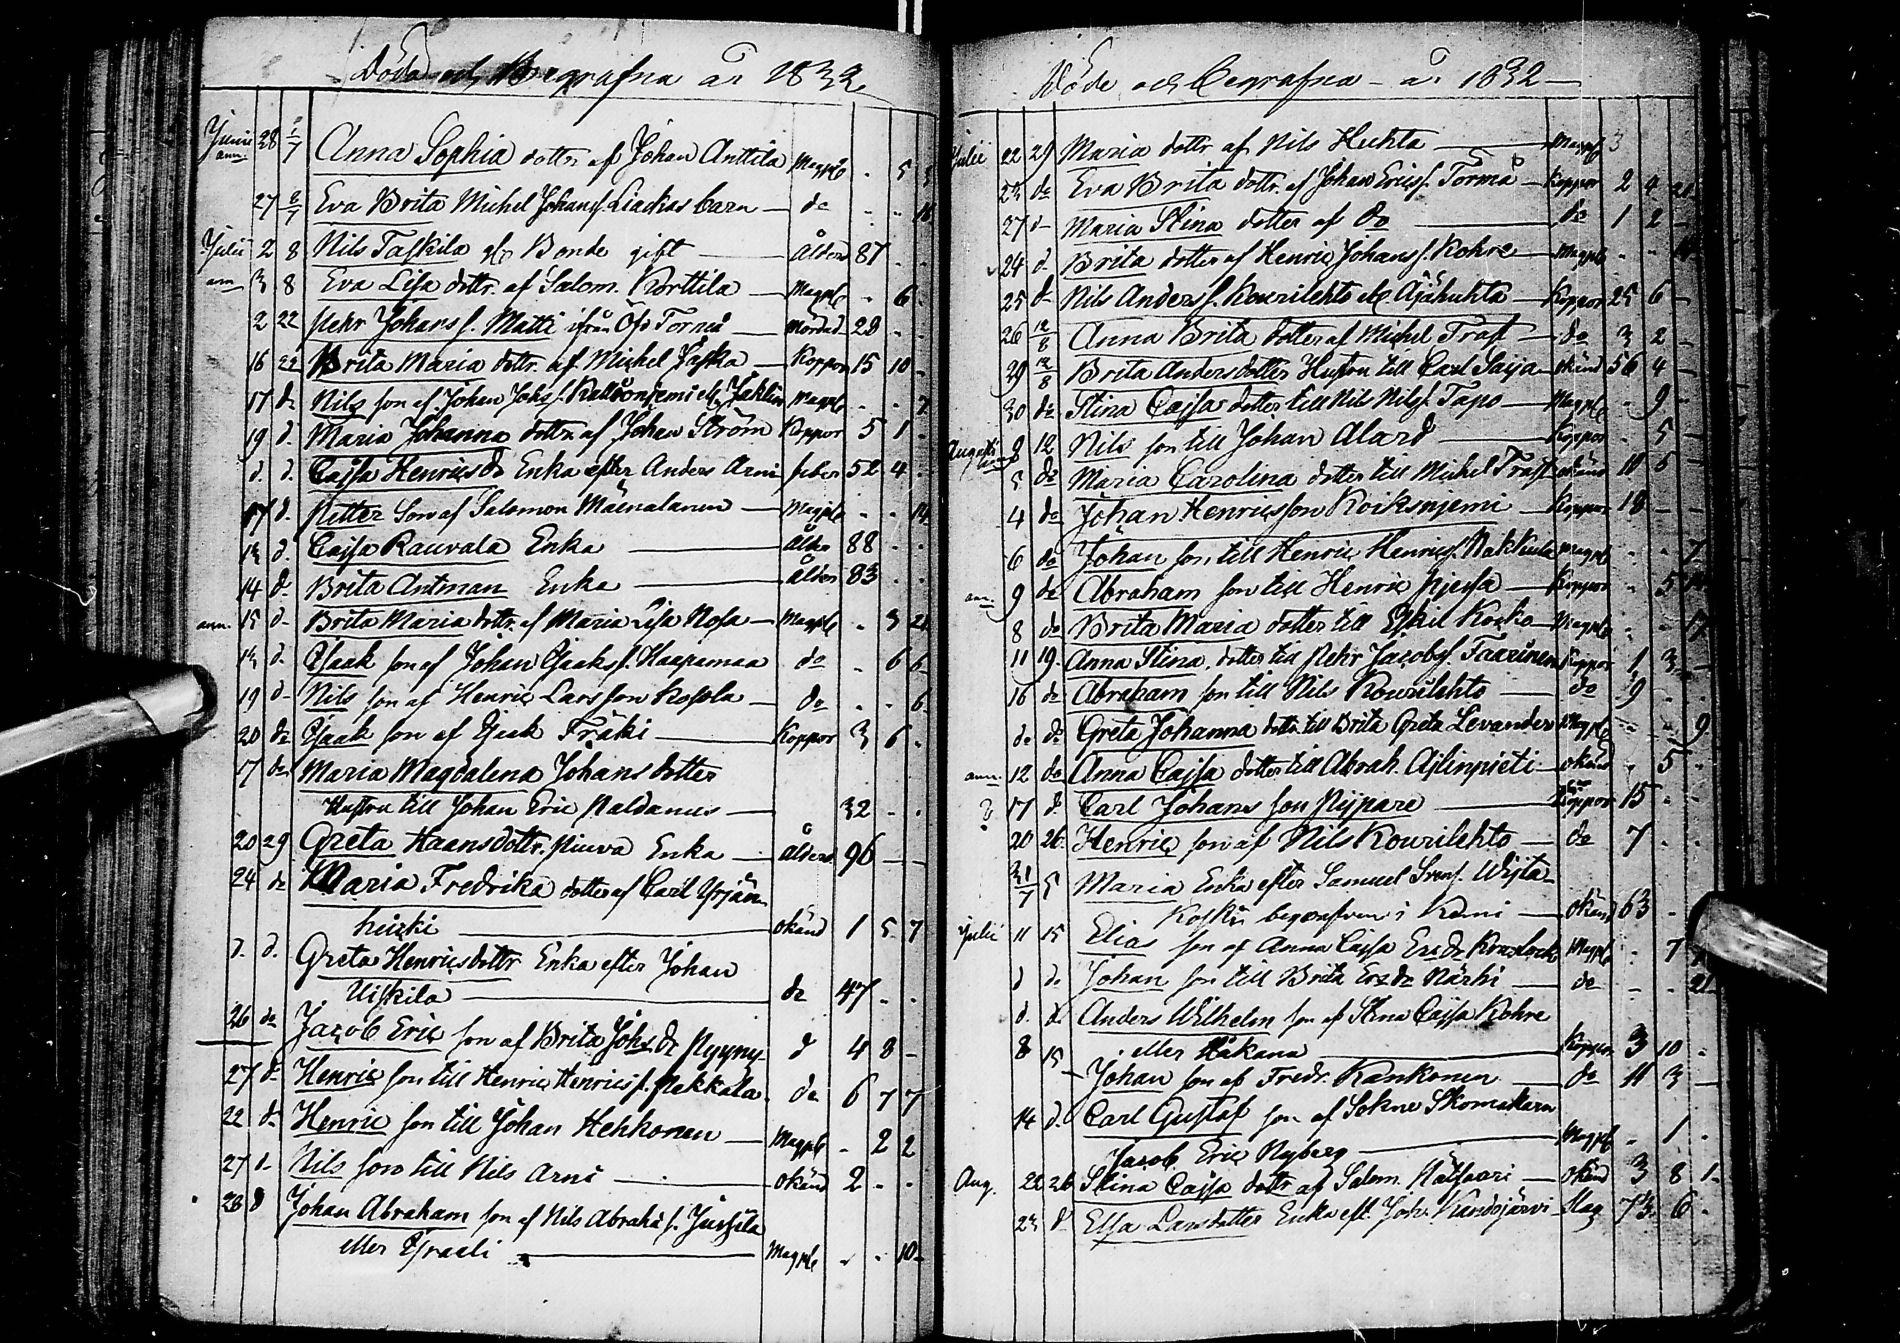 Döda och Begrafna år 1832
Junii 28 1/7 Anna Sophia dottr af Johan Anttila Magpl . 5 3
27 8/7 Eva Brita Michel Johans f. Liackas barn — do . . 18
Julii 2 8 Nils Taskila eller Bonde gift — Ålder 87 . .
3 8 Eva Lisa dottr. af Salom. Korttila — Magpl . 6 .
2 22 Pehr Johans s. Matti ifrån Öfr Torneå — Mördad 28 . .
16 22 Brita Maria dottr. af Michel Paska — Koppor 15 10 .
17 do Nils son af Johan Johs s. Magpl . . 7
19 d. Maria Johanna dottr af Johan Ström Koppor 5 1 .
d. d. Cajsa Henricsdr Enka efter Anders Arni feber 52 4 .
17 d. Petter Son af Salomon Mäenalanen — Magpl . . 14
13 d. Cajsa Rauvala Enka — Ålder 88 . .
14 d. Brita Antman Enka — ålder 83 . .
15 d. Brita Maria dottr. af Maria Lisa Rosa — Magpl . 3 21
13 d. Isaak son af Johan Isaaks s. Haapamaa do . 6 6
19 d. Nils son af Henric Larsson Kossla — do . . 6
20 do Isaak son af Isak Fräki — Koppor 3 6 .
17 do Maria Magdalena Johans dotter
Hustru till Johan Eric Paldanus — 32 . .
20 29 Greta Haansdottr. Piuva Enka — ålder 96 — —
24 do Maria Fredrika dotter af Carl Yrjän
heicki — okänd 1 5 7
d. d. Greta Henricsdottr Enka efter Johan
Uiskila — do 47 . .
26 do Jacob Eric son af Brita Johs. dr Pyyny d 4 8 —
27 do Henric son till Henric Henrics s. Pakkala do 6 7 7
22 do Henric son till Johan Hehkonen — Magpl . 2 2
27 d. Nils son till Nils Arni — okänd 2 . .
28 d Johan Abraham son af Nils Abrahä s. Jussila
eller Israeli — Magpl . . 10
Döde och Begrafna — år 1832 —
Julii 22 29 Maria dottr af Nils Huhta — Magpl 3
23 do Eva Brita dottr. af Johan Erics s. Tormä — Koppor 2 4 21
27 d. Maria Stina dotter af do — do 1 2 —
24 d. Brita dotter af Henric Johans s. Kohre — Magpl . .
25 d. Nils Anders s. Kourilehto eller Äjähuhta — Koppor 25 6 —
26 12/8 Anna Brita dotter af Michel Trast — do 3 2 —
29 12/8 Brita Andersdotter Hustru till Carl Saija okänd 56 4 —
30 do Stina Cajsa dotter till Nils Nils s. Tapo — Magpl . 9 —
Augusti 9 12 Nils son till Johan Alard — Koppor . 5 —
5 do Maria Carolina dotter till Michel Trast okänd 11 5 —
4 do Johan Henricsson Koiksnjemi — Koppor 18 — —
6 do Johan son till Henric Henrics s. Pakkula Magpl . . 7
9 do Abraham son till Henric Pjessa — Koppor . 5
8 do Brita Maria dotter till Eskil Kocko — Magpl . . 17
11 19. Anna Stina dotter till Pehr Jacobs s. Taarinen Koppor 1 3 —
16 do Abraham son till Nils Kourilehto — do 9 . .
do do Greta Johanna dottr till Brita Greta Levander Magpl . . 9
12 do Anna Cajsa dotter till Abrah. Ajlinpieti — okänd . 5 .
17 d. Carl Johans son Pijpare — Koppor 15 . .
20 26. Henric son af Nils Kourilehto — do 7 . .
31/7 5 Maria Enka efter Samuel Wijta
Koski begrafven i Kemi — okänd 63 . .
Julii 11 15 Elias son af Anna Cajsa Ersdr Magpl . 7
d d. Johan son till Brita Ersdr Närhi — do — — 21
d. d. Anders Wilhelm son af Stina Cajsa Kohre
eller Håkana — Koppor 3 10 .
8 15 Johan son af Fredr. Kankonen — do 11 3 —
14 d. Carl Gustaf son af Sokne Skomakarn
Jacob Eric Nyberg — Magpl . 1 .
Aug. 22 26 Stina Cajsa dottr af Salom. — okänd 3 8 1.
23 d. Elsa Larsdotter Enka eft. Joh. Kandojärvi Slag 73 6 .